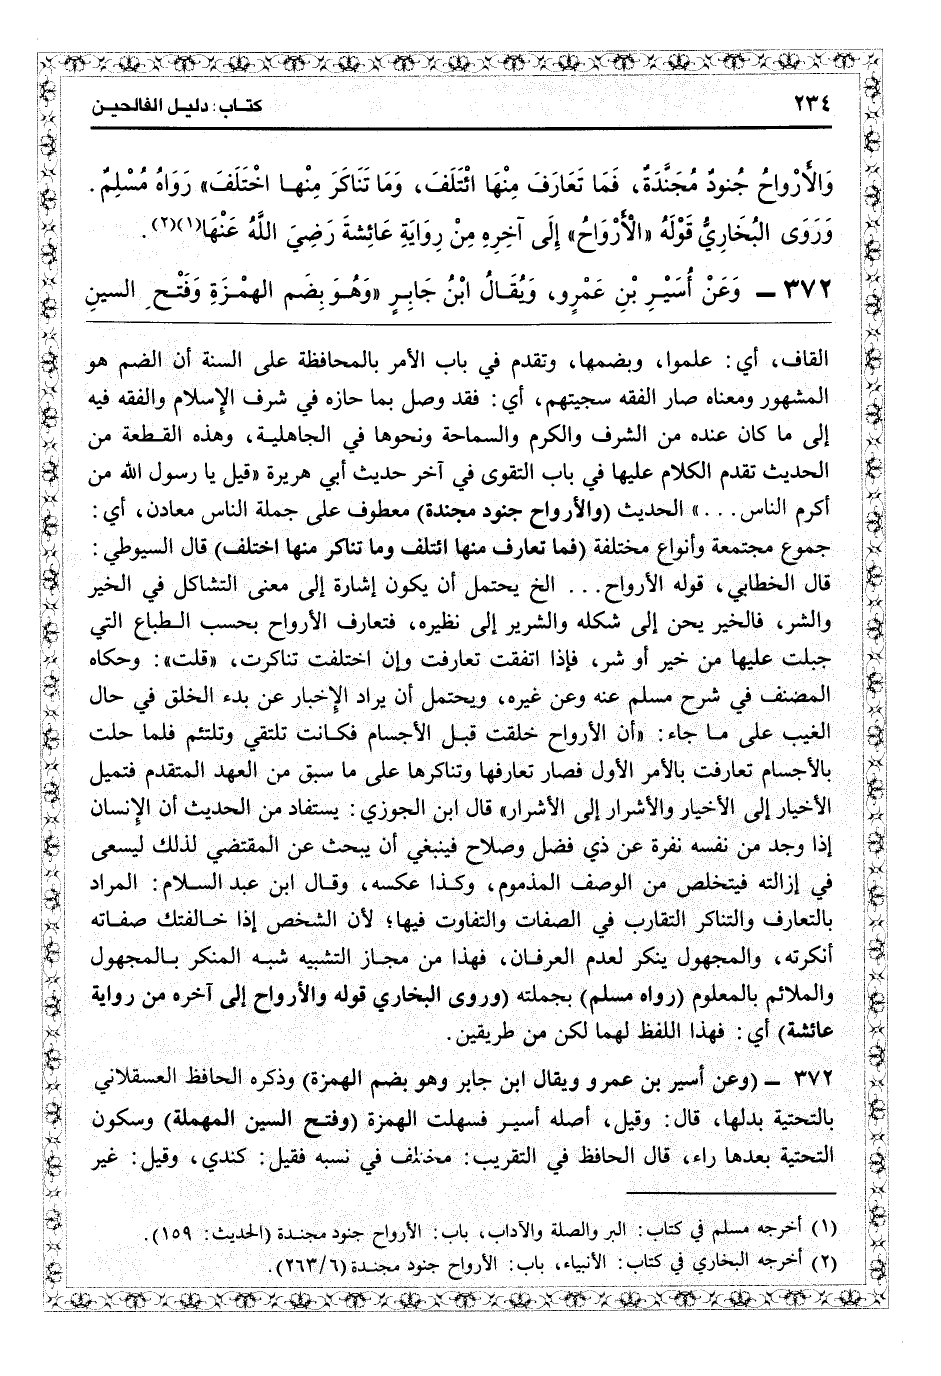 ٢٣٤
كتاب: دليل الفالحين
وَالأَرْوَاحُ جُنودٌ مُجَنَّدَةٌ، فَمَا تَعَارَفَ مِنْهَا ائْتَلَفَ، وَمَا تَنَاكَرَ مِنْهـا اخْتَلَفَ» رَوَاهُ مُسْلِمٌ.
وَرَوَى البُخَارِيُّ قَوْلَهُ «الْأَرْوَاحُ» إِلَى آخِرِهِ مِنْ رِوَايَةِ عَائِشةَ رَضِيَ اللَّهُ عَنْهَا(١)(٢).
٣٧٢ ـ وَعَنْ أُسَيْرِ بْنِ عَمْرٍو، وَيُقَالُ ابْنُ جَابِرٍ «وَهُـوَ بِضَم الهمْزَةِ وَفَتْـحِ السينِ
القاف، أي: علموا، وبضمها، وتقدم في باب الأمر بالمحافظة على السنة أن الضم هو
المشهور ومعناه صار الفقه سجيتهم، أي: فقد وصل بما حازه في شرف الإسلام والفقه فيه
إلى ما كان عنده من الشرف والكرم والسماحة ونحوها في الجاهلية، وهذه القطعة من
الحديث تقدم الكلام عليها في باب التقوى في آخر حديث أبي هريرة «قيل يا رسول الله من
أكرم الناس...» الحديث (والأرواح جنود مجندة) معطوف على جملة الناس معادن، أي:
جموع مجتمعة وأنواع مختلفة (فما تعارف منها ائتلف وما تناكر منها اختلف) قال السيوطي:
قال الخطابي، قوله الأرواح... الخ يحتمل أن يكون إشارة إلى معنى التشاكل في الخير
والشر، فالخير يحن إلى شكله والشرير إلى نظيره، فتعارف الأرواح بحسب الطباع التي
جبلت عليها من خير أو شر، فإذا اتفقت تعارفت وإن اختلفت تناكرت، «قلت»: وحكاه
المصنف في شرح مسلم عنه وعن غيره، ويحتمل أن يراد الإخبار عن بدء الخلق في حال
الغيب على ما جاء: «أن الأرواح خلقت قبل الأجسام فكانت تلتقي وتلتئم فلما حلت
بالأجسام تعارفت بالأمر الأول فصار تعارفها وتناكرها على ما سبق من العهد المتقدم فتميل
الأخيار إلى الأخيار والأشرار إلى الأشرار» قال ابن الجوزي: يستفاد من الحديث أن الإنسان
إذا وجد من نفسه نفرة عن ذي فضل وصلاح فينبغي أن يبحث عن المقتضي لذلك ليسعى
في إزالته فيتخلص من الوصف المذموم، وكذا عكسه، وقال ابن عبد السلام: المراد
بالتعارف والتناكر التقارب في الصفات والتفاوت فيها؛ لأن الشخص إذا خالفتك صفاته
أنكرته، والمجهول ينكر لعدم العرفان، فهذا من مجاز التشبيه شبه المنكر بالمجهول
والملائم بالمعلوم (رواه مسلم) بجملته (وروى البخاري قوله والأرواح إلى آخره من رواية
عائشة) أي: فهذا اللفظ لهما لكن من طريقين.
٣٧٢ ـ (وعن أسير بن عمرو ويقال ابن جابر وهو بضم الهمزة) وذكره الحافظ العسقلاني
بالتحتية بدلها، قال: وقيل، أصله أسير فسهلت الهمزة (وفتح السين المهملة) وسكون
التحتية بعدها راء، قال الحافظ في التقريب: مختلف في نسبه فقيل: كندي، وقيل: غير
(١) أخرجه مسلم في كتاب: البر والصلة والآداب، باب: الأرواح جنود مجندة (الحديث: ١٥٩).
(٢) أخرجه البخاري في كتاب: الأنبياء، باب: الأرواح جنود مجندة (٢٦٣/٦).